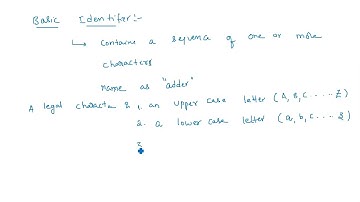 Basic Identifer:-
↳ Contains a sequence of one or more
characters
name as "adder"
A legal character is 1. an upper case letter (A, B, C .... Z)
2. a lower case letter (a, b, c .... z)
3